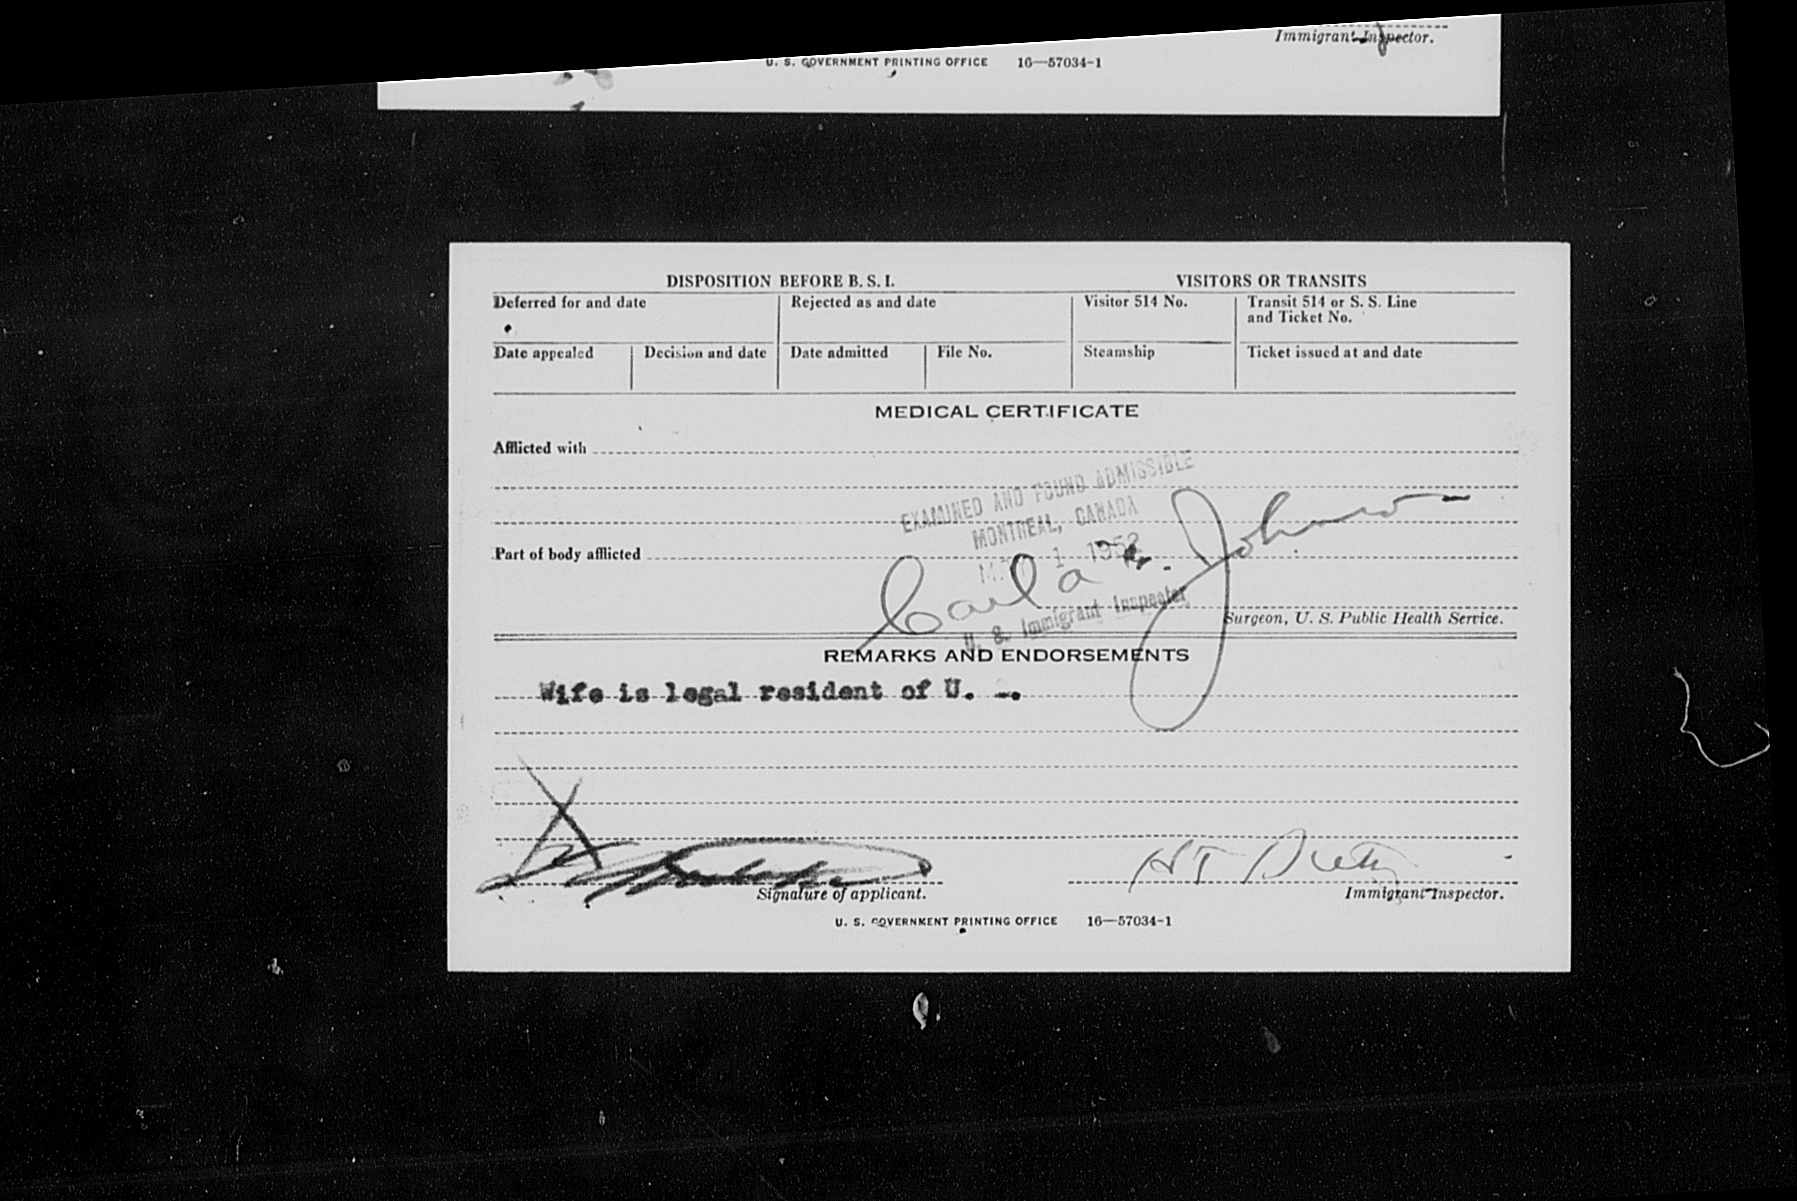 Immigrant Inspector.
U. S. GOVERNMENT PRINTING OFFICE 16—57034-1
DISPOSITION BEFORE B. S. I. VISITORS OR TRANSITS
Deferred for and date Rejected as and date Visitor 514 No. Transit 514 or S. S. Line
and Ticket No.
Date appealed Decision and date Date admitted File No. Steamship Ticket issued at and date
MEDICAL CERTIFICATE
Afflicted with
EXAMINED AND FOUND ADMISSIBLE
MONTREAL, CANADA
Part of body afflicted
1 1952
Johnson
U. S. Immigrant Inspector
Surgeon, U. S. Public Health Service.
REMARKS AND ENDORSEMENTS
Wife is legal resident of U.
Signature of applicant.
Immigrant Inspector.
U. S. GOVERNMENT PRINTING OFFICE 16—57034-1